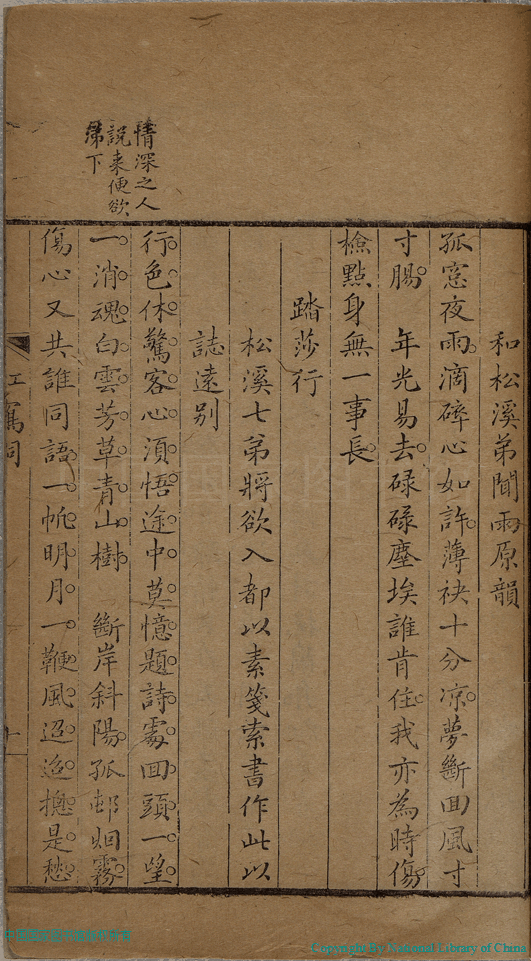 和松溪弟聞雨原韻
孤窓夜雨滴碎心如許薄袂十分凉夢斷回風寸
寸腸　年光易去碌碌塵埃誰肯住我亦為時傷
檢點身無一事長
踏莎行
松溪七弟將欲入都以素箋索書作此以
誌遠别
行色休驚客心須悟途中莫憶題詩處回頭一望
一消魂白雲芳草青山樹　斷岸斜陽孤邨烟霧
傷心又共誰同語一帆明月一鞭風迢迢摠是愁
情深之人
說来便欲
第下
Copyright By National Library of China